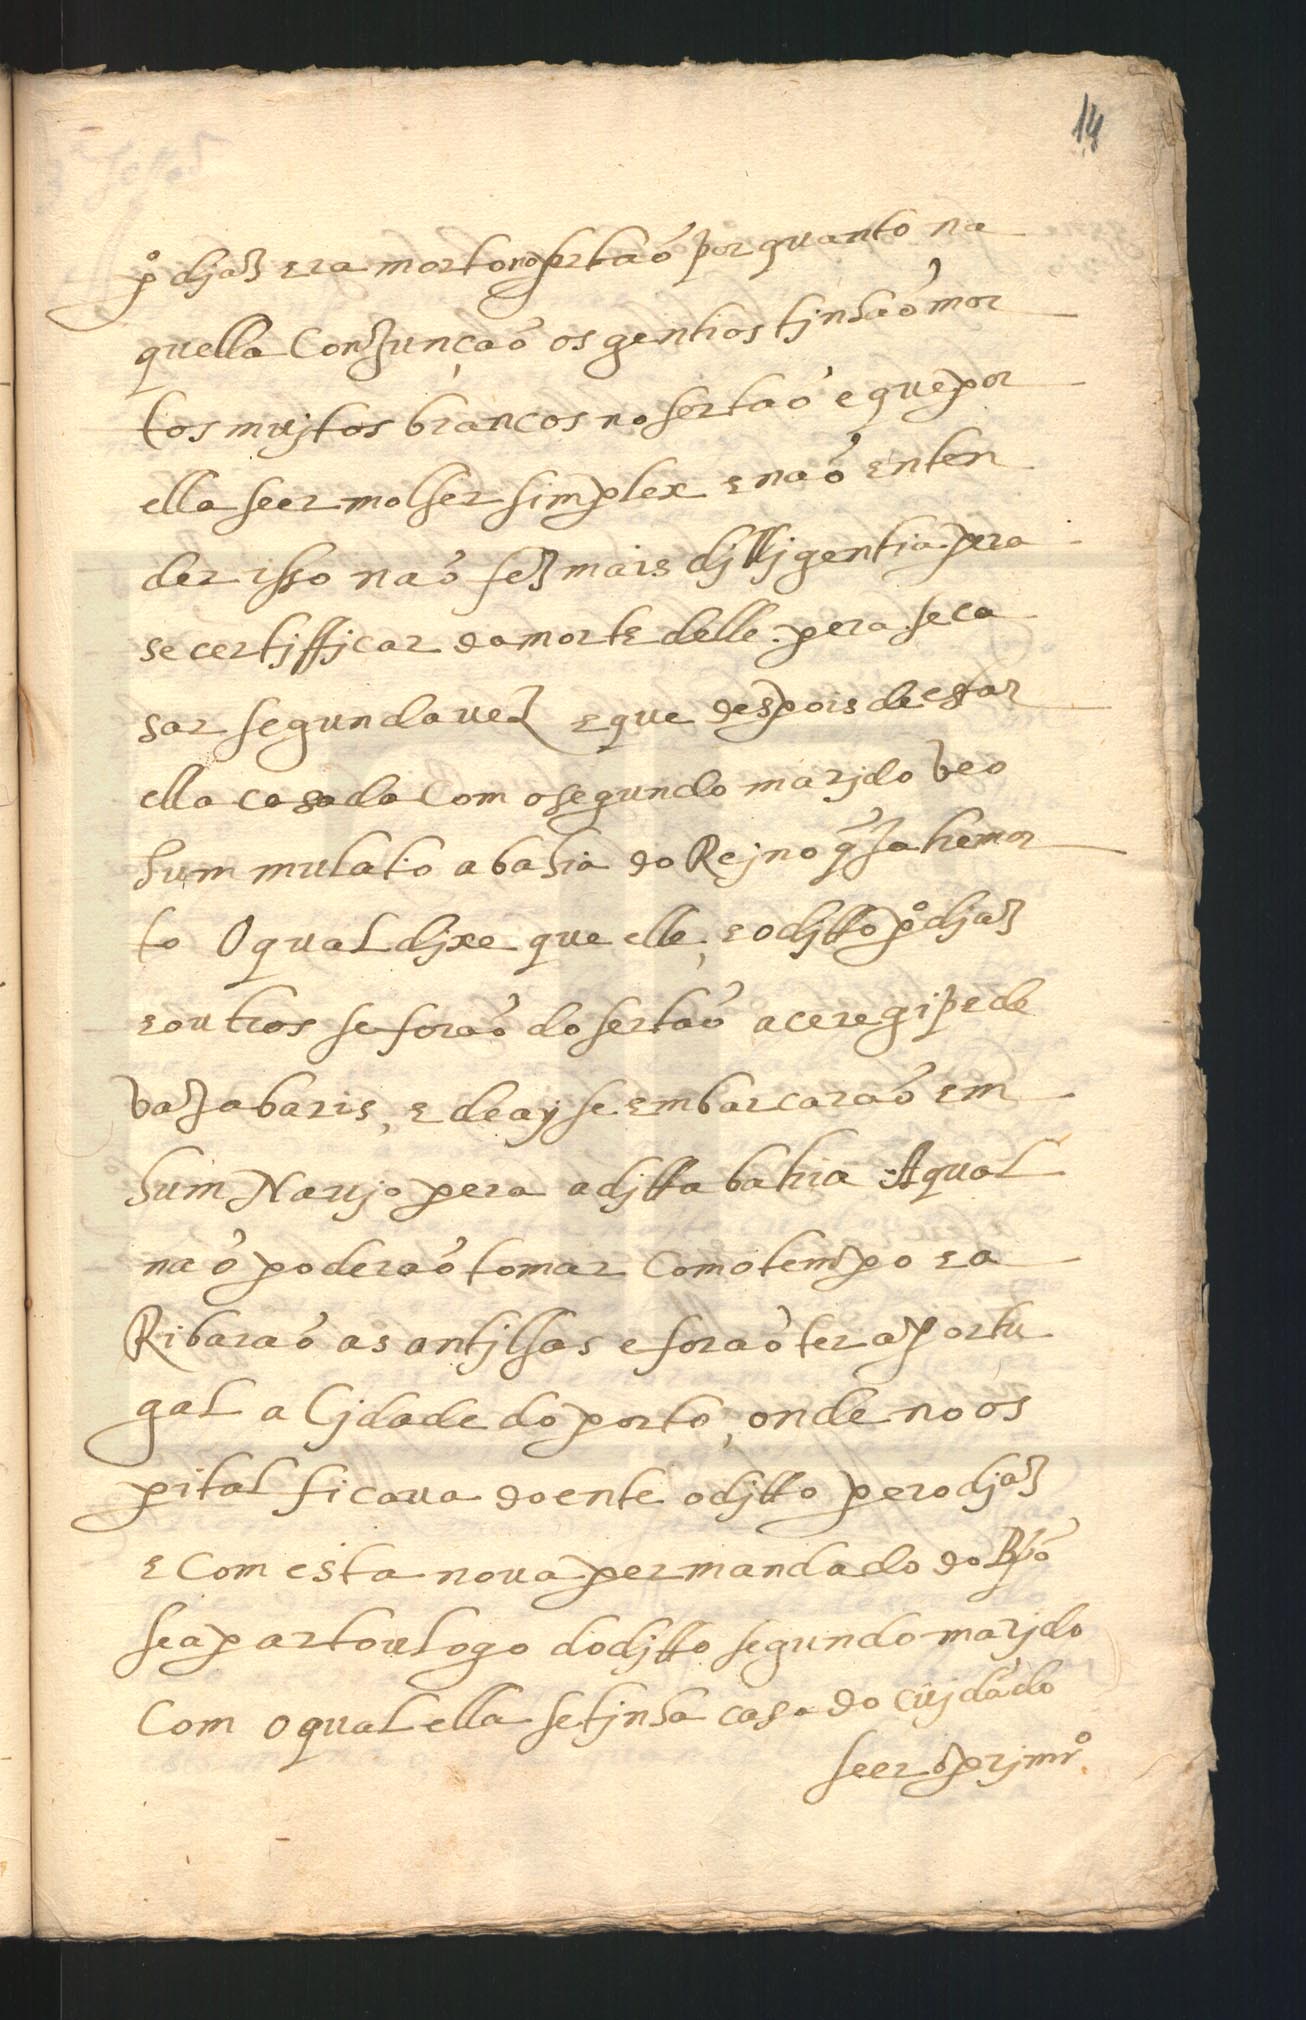 14
pº djaz era morto no sertaõ por quanto na
quella Conjunçaõ os gentios tjnhaõ mor
tos mujtos brancos no sertaõ e que por
ella seer molher simplex e naõ enten
der isso naõ fez mais djlljgentia pera
se certjffjcar da morte delle pera se ca
sar segunda vez e que despois de estar
ella casada Com o segundo marjdo veo
hum mulato a bahia do Rejno q̃ ja he mor
to O qual djxe que elle, e o djtto pº djaz
e outros se foraõ do sertaõ a ceregipe de
vazabaris, e de ay se embarcaraõ em
hum Navjo pera a djtta bahia A qual
naõ poderaõ tomar Com o tempo e a
Ribaraõ as antjlhas e foraõ ter a portu
gal a Cjdade do porto, onde no os
pital ficava doente o djtto pero djaz
e Com esta nova per mandado do Bpõ
se apartou logo do djtto segundo marjdo
Com o qual ella se tjnha casado cujdãdo
seer o prjmrº